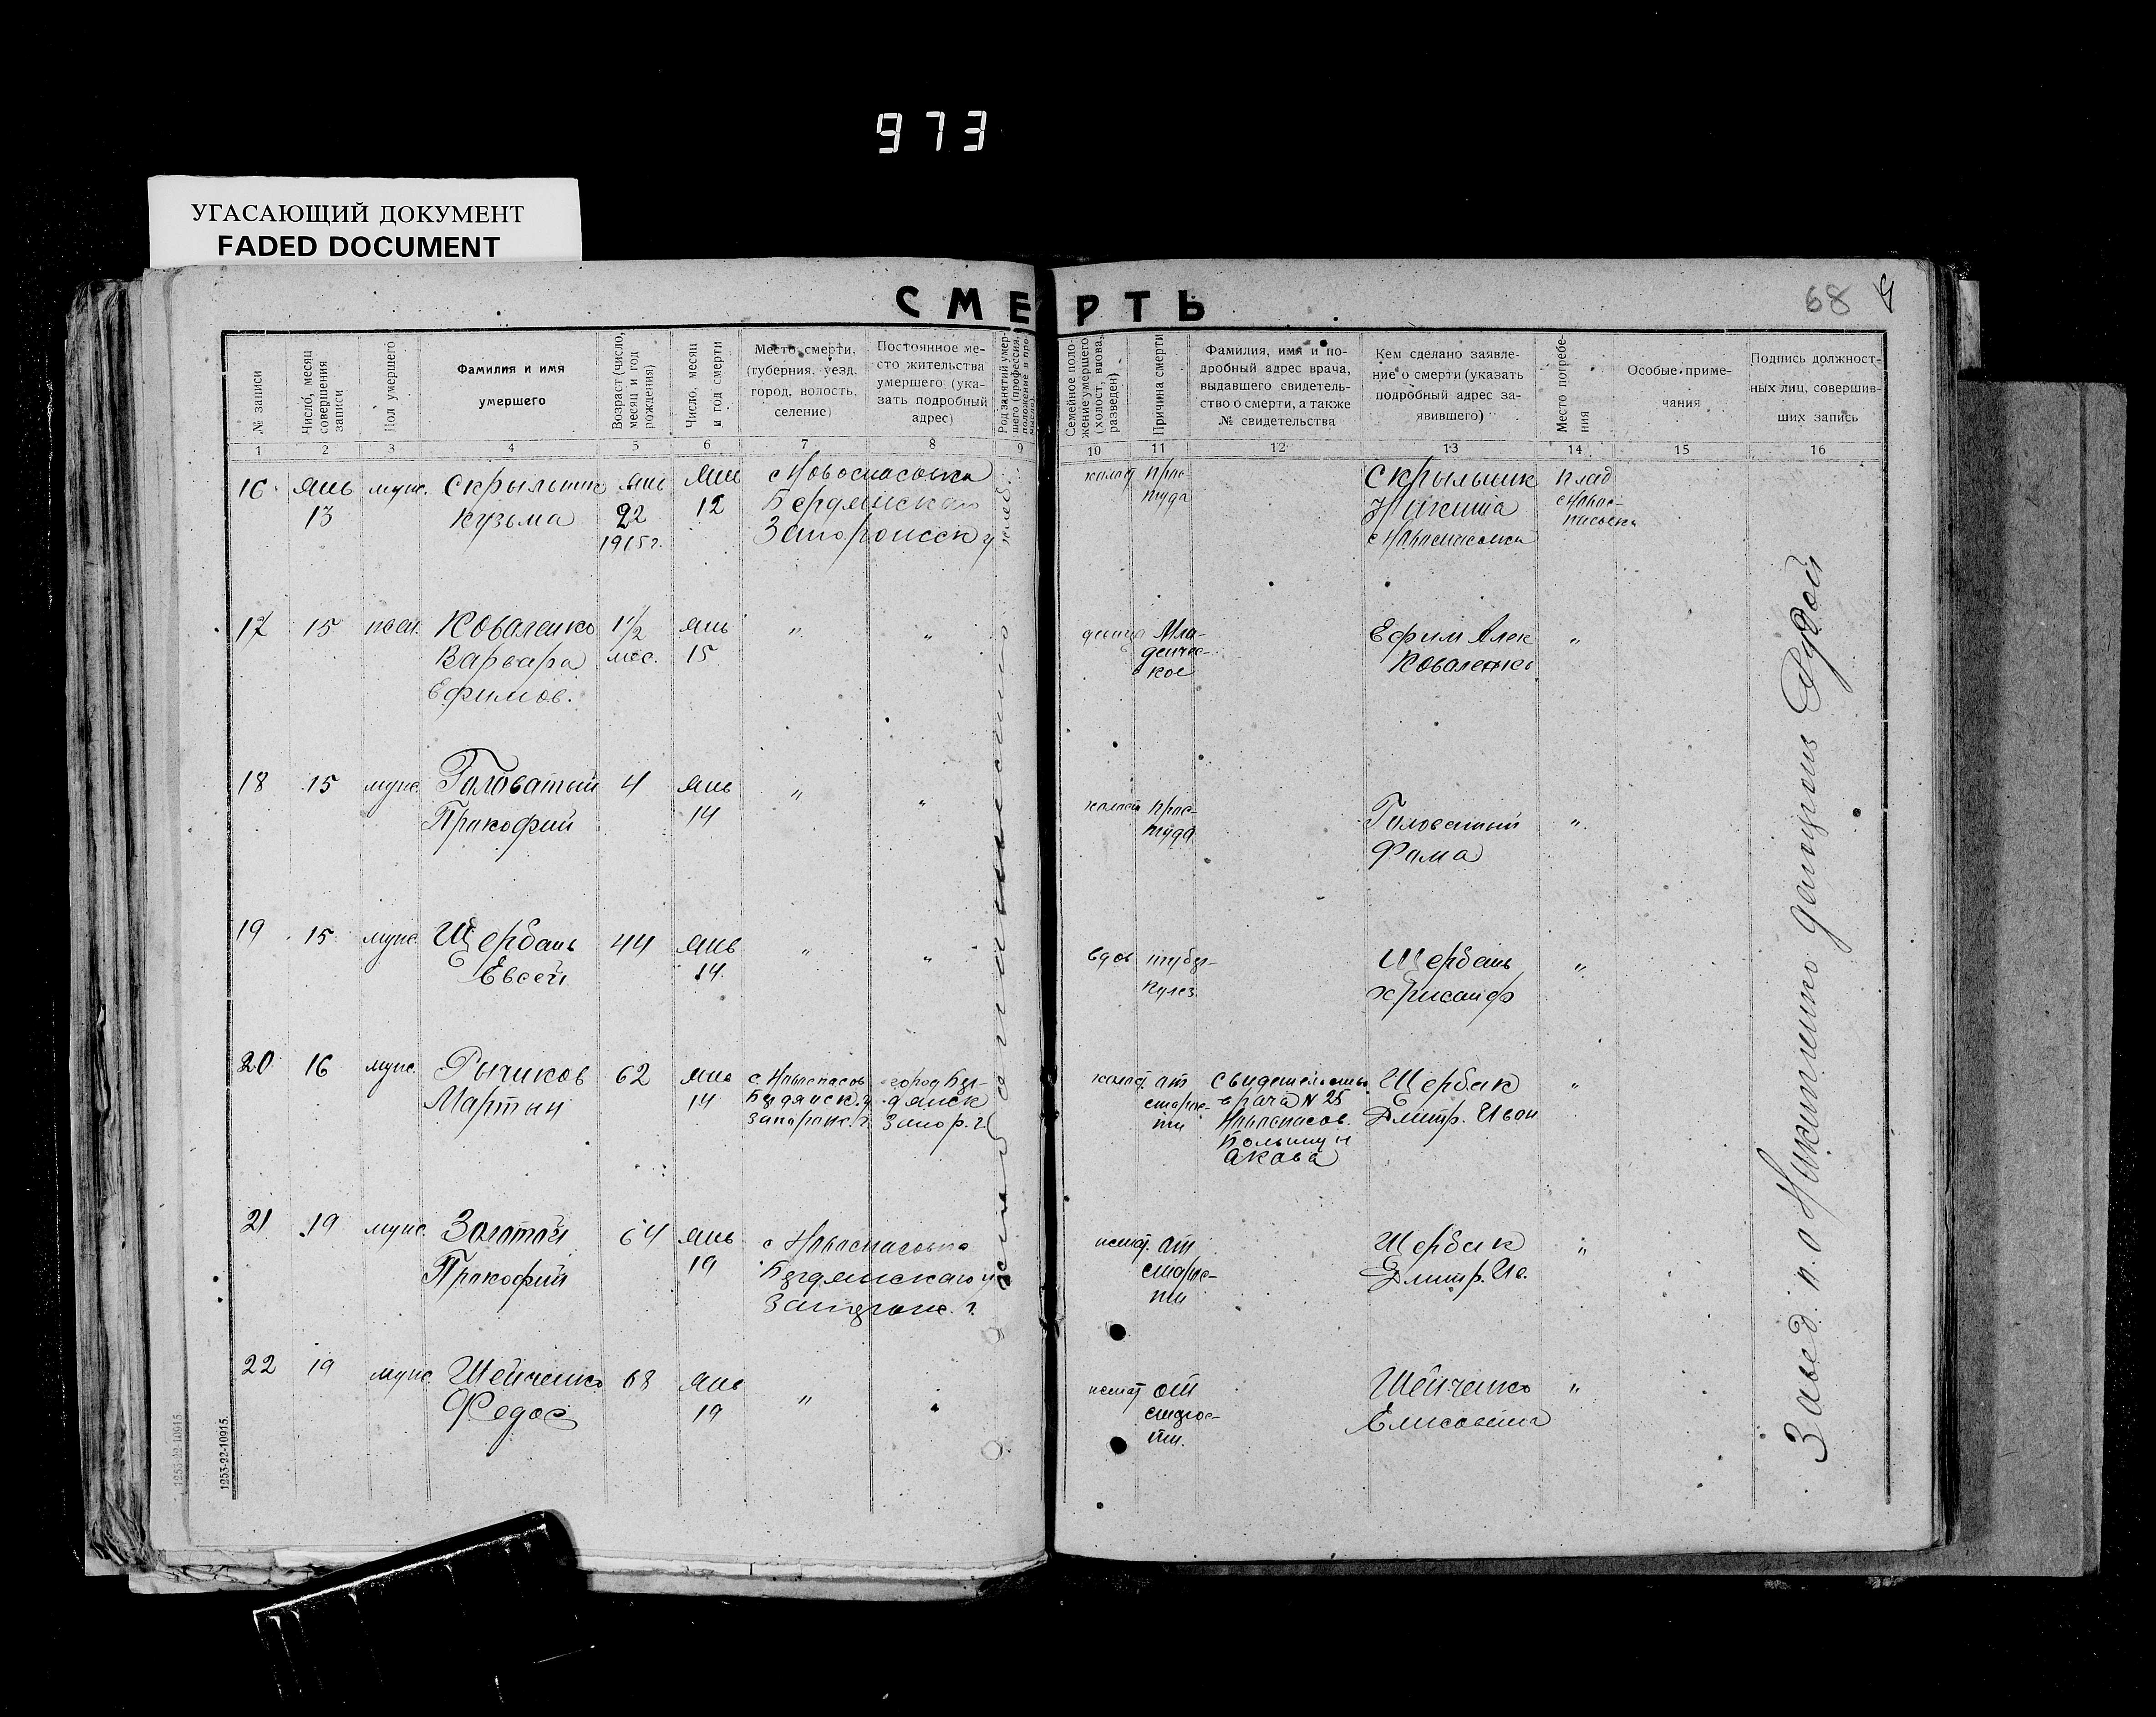 973
УГАСАЮЩИЙ ДОКУМЕНТ
FADED DOCUMENT
СМЕРТЬ
68
№ записи
Число, месяц совершения записи
Пол умершего
Фамилия и имя умершего
Возраст (число, месяц и год рождения)
Число, месяц и год смерти
Место смерти, (губерния, уезд, город, волость, селение)
Постоянное место жительства умершего (указать подробный адрес)
Род занятий умершего (профессия, положение в промысле)
Семейное положение умершего (холост, вдова, разведен)
Причина смерти
Фамилия, имя и подробный адрес врача, выдавшего свидетельство о смерти, а также № свидетельства
Кем сделано заявление о смерти (указать подробный адрес заявившего)
Место погребения
Особые примечания
Подпись должностных лиц, совершивших запись
1 2 3 4 5 6 7 8 9 10 11 12 13 14 15 16
16 янь муж. Скрыльник янь янь с Новоспасовка холос прос Скрыльник клад
13 Кузьма 22 12 Бердянскаго туда Никита
1915 г. Запорожск
17 15 жен. Коваленко 1 1/2 янь " " Мла- Ефим Алек "
Варвара мес. 15 денчес- Коваленко
Ефимов. кое
18 15 муж. Головатый 4 янь " " холост прос- Головатый "
Прокофий 14 туда Фома
19 15 муж. Щербань 44 янь " " вдов тубер- Щербань "
Евсей 14 кулез Хрисанф
20 16 муж. Рычиков 62 янь с. Новоспасов город Бер- от Щербак "
Мартын 14 Бердянск. у дянск старос- врача N 25 Дмитр. Иван
Запорож. г. Запор. г. ти Новоспасов.
21 19 муж. Золотой 64 янь с Новоспасовка женат. от Щербак "
Прокофий 19 Бердянскаго у старос- Дмитр. Ив.
ти
22 19 муж. Шейченко 68 янь " женат от Шейченко "
Федос 19 старос- Елисавета
ти.
Завед. п. о Никитенко
1253-22-10915.
1253-22-10915.